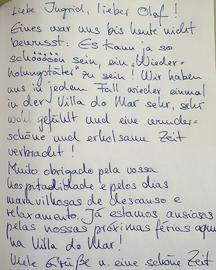 Liebe Ingrid, lieber Olaf!
Eines war uns bis heute nicht
bewusst: Es kann ja so
schööööön sein, ein "Wieder-
holungstäter" zu sein! Wir haben
uns in jedem Fall wieder einmal
in der Villa do Mar sehr, sehr
wohl gefühlt und eine wunder-
schöne und erholsame Zeit
verbracht!
Muito obrigado pela vossa
hospitalidade e pelos dias
maravilhosas de descanso e
relaxamento. Já estamos ansiosos
pelas nossas próximas férias aqui
na Villa do Mar!
Viele Grüße u. eine schöne Zeit